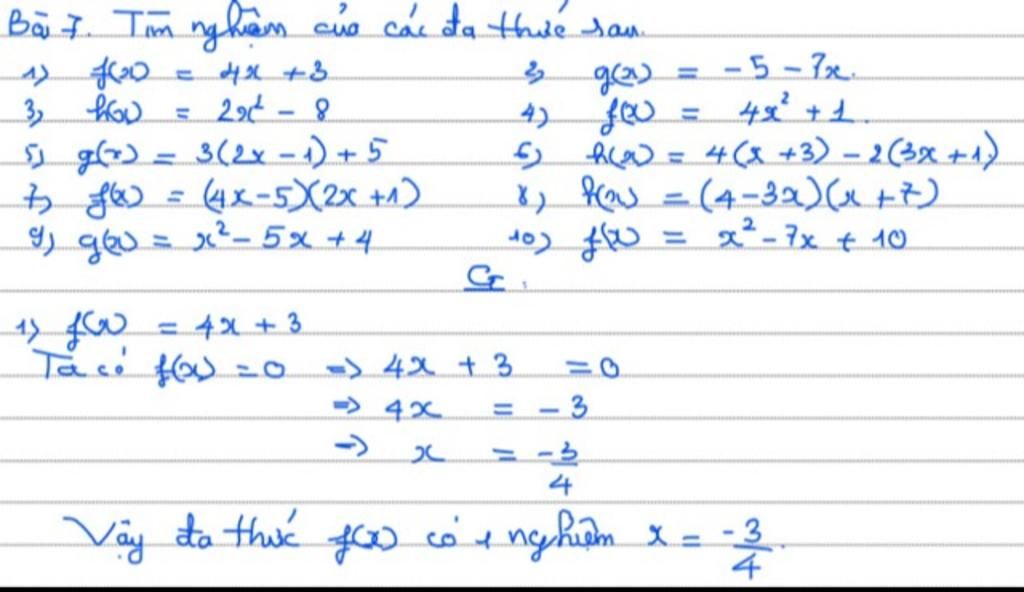 Bài 7. Tìm nghiệm của các đa thức sau.
1) f(x) = 4x + 3 2) g(x) = -5 - 7x.
3) h(x) = 2x² - 8 4) f(x) = 4x² + 1.
5) g(x) = 3(2x - 1) + 5 6) h(x) = 4(x + 3) - 2(3x + 1)
7) f(x) = (4x - 5)(2x + 1) 8) h(x) = (4 - 3x)(x + 7)
9) g(x) = x² - 5x + 4 10) f(x) = x² - 7x + 10
G.
1) f(x) = 4x + 3
Ta có f(x) = 0 => 4x + 3 = 0
=> 4x = -3
=> x = -3/4
Vậy đa thức f(x) có 1 nghiệm x = -3/4.